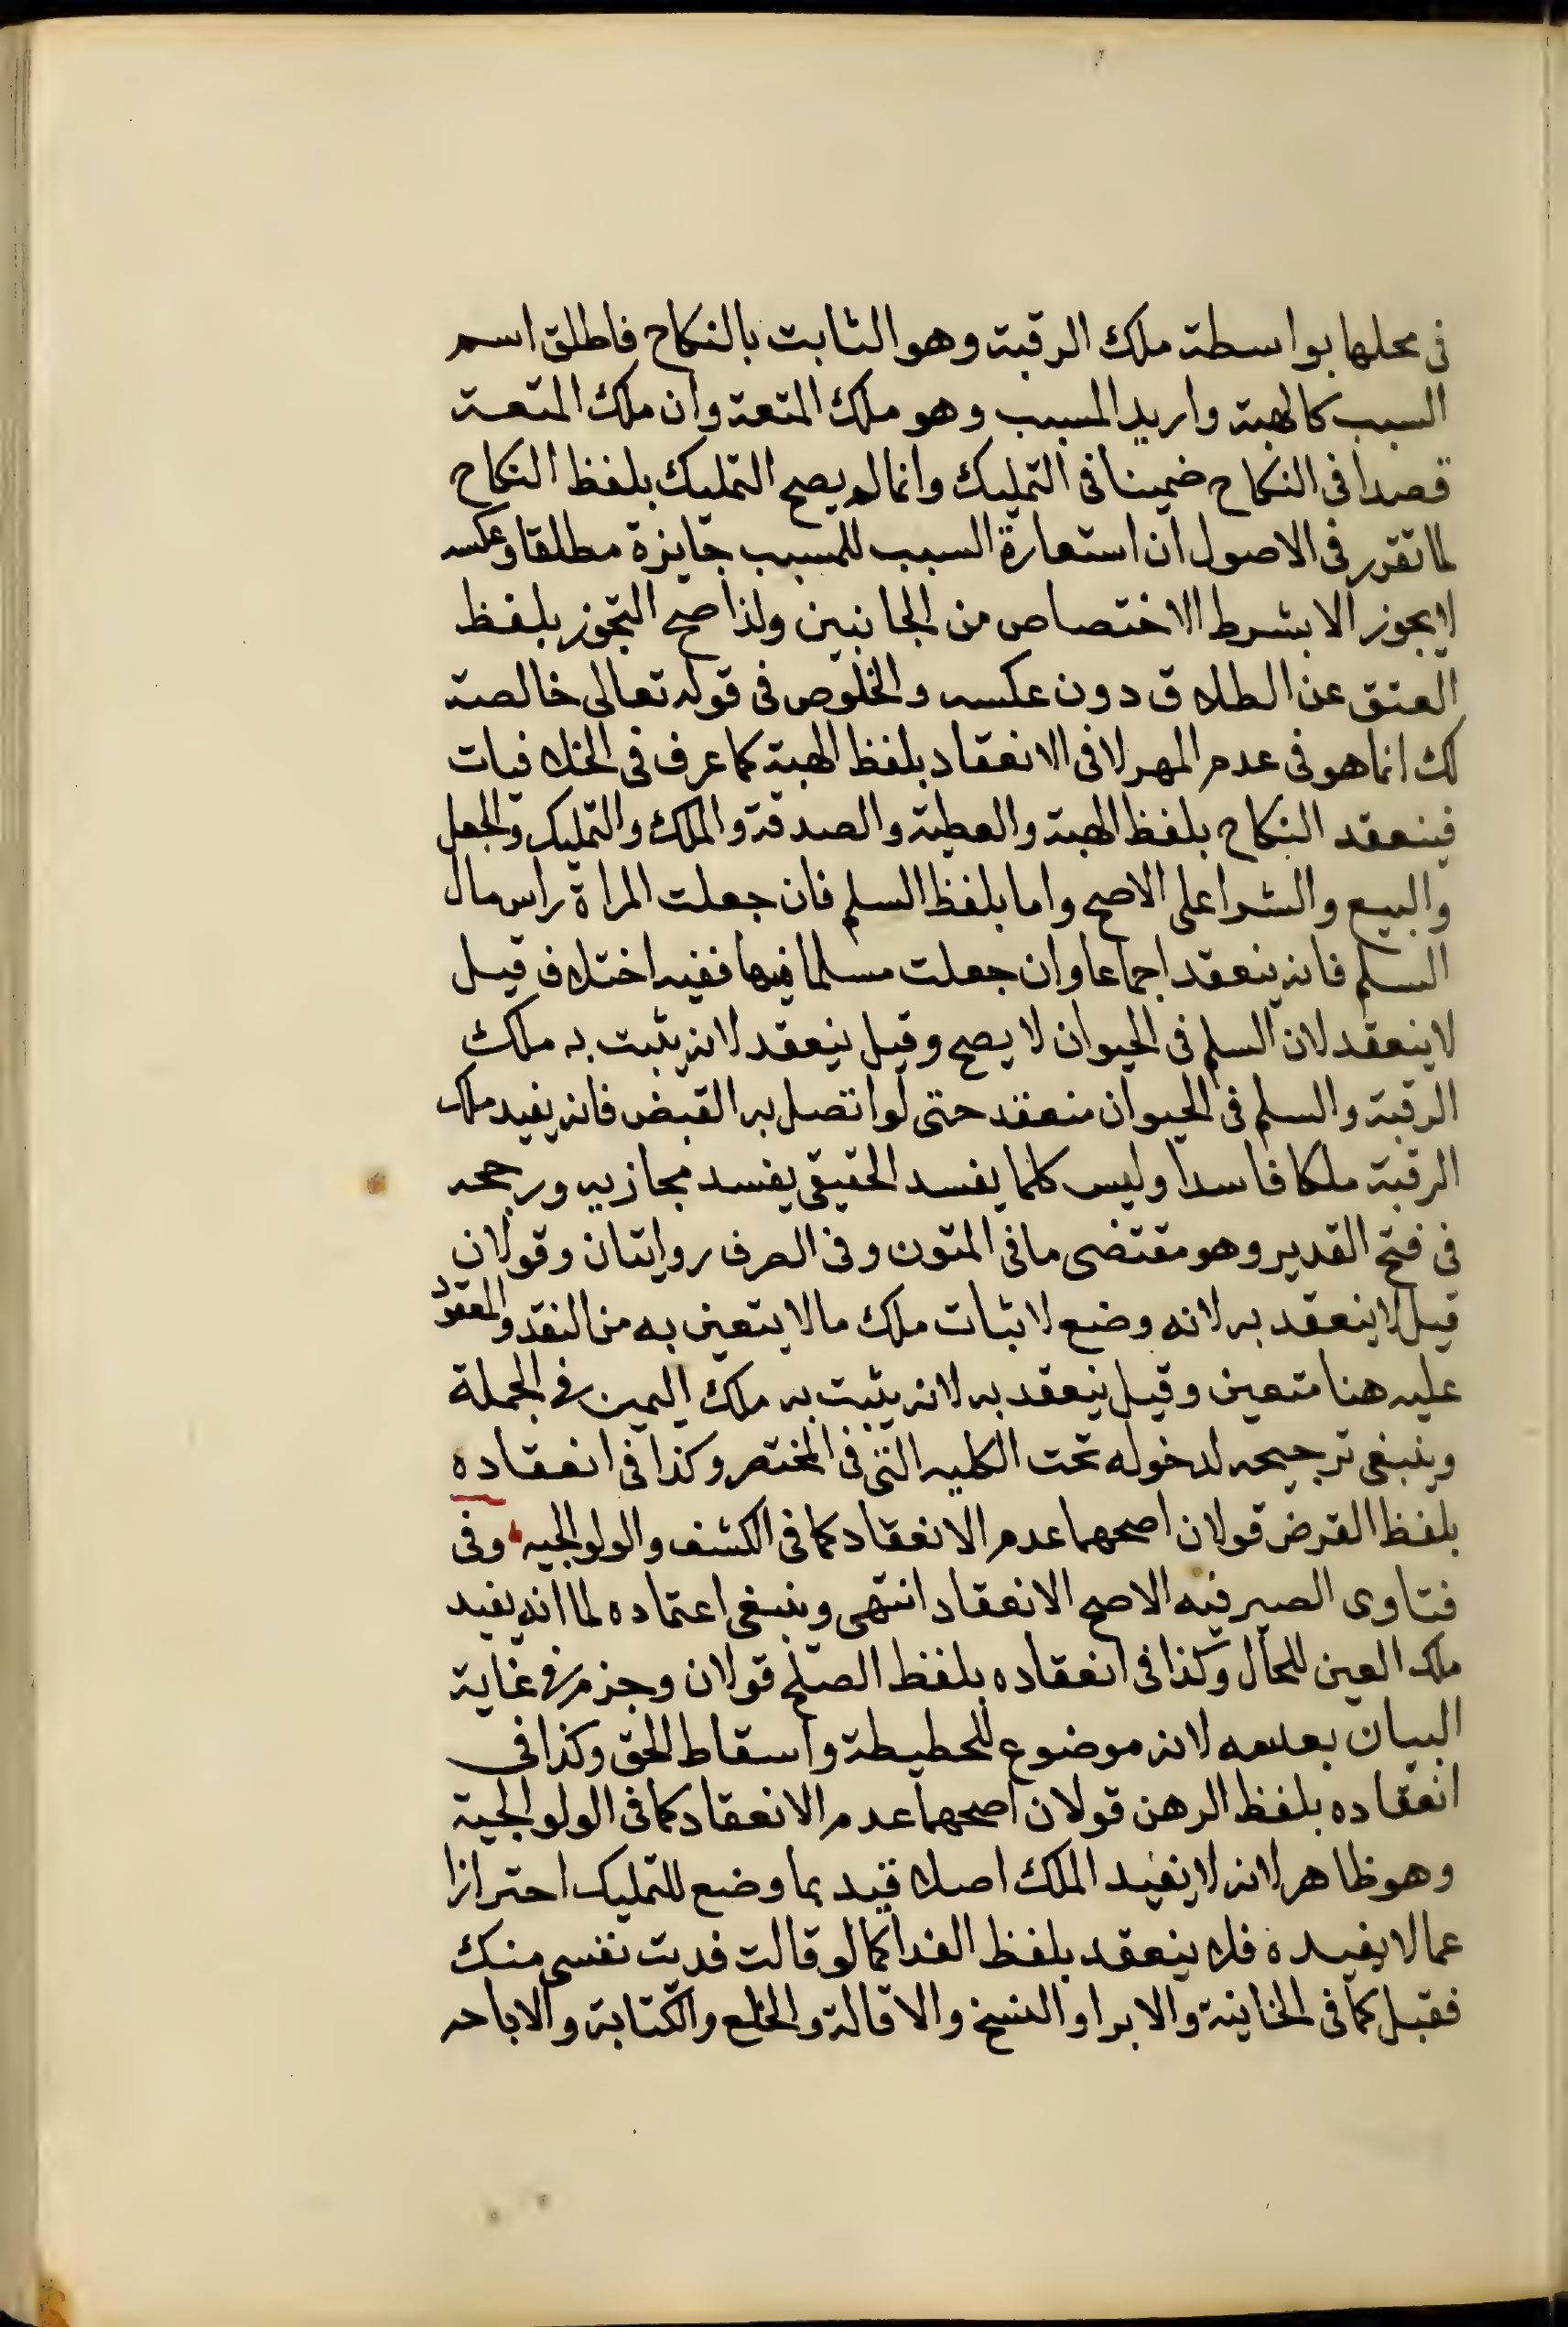 فى محلها بواسطة ملك الرقبة وهو الثابت بالنكاح فاطلق اسم
السبب كالهبة واريد المسبب وهو ملك المتعة وان ملك المتعة
قصدا فى النكاح ضمينا فى التمليك وانما لم يصح التمليك بلفظ النكاح
لما تقرر فى الاصول ان استعارة السبب للمسبب جايزة مطلقا وعكسه
لا يجوز الا بشرط الاختصاص من الجانبين ولذا صح التجوز بلفظ
العتق عن الطلاق دون عكسه والخلوص فى قوله تعالى خالصة
لك انما هو فى عدم المهر لا فى الانعقاد بلفظ الهبة كما عرف فى الخلافيات
فينعقد النكاح بلفظ الهبة والعطية والصدقة والملك والتمليك والجعل
والبيع والشرا على الاصح واما بلفظ السلم فان جعلت المراة راس مال
السلم فانه ينعقد اجماعا وان جعلت مسلما فيها ففيه اختلاف قيل
لا ينعقد لان السلم فى الحيوان لا يصح وقيل ينعقد لانه يثبت به ملك
الرقبة والسلم فى الحيوان منعقد حتى لو اتصل به القبض فانه يفيد ملك
الرقبة ملكا فاسدا وليس كلما يفسد الحقيقى يفسد مجازيه ورجحه
فى فتح القدير وهو مقتضى ما فى المتون وفى الصرف روايتان وقولان
قيل لا ينعقد به لانه وضع لاثبات ملك ما لا يتعين به من النقد والمعقود
عليه هنا متعين وقيل ينعقد به لانه يثبت به ملك اليمين فى الجملة
وينبغى ترجيحه لدخوله تحت الكليه التى فى المختصر وكذا فى انعقاده
بلفظ القرض قولان اصحهما عدم الانعقاد كما فى الكشف والولوالجيه وفى
فتاوى الصيرفيه الاصح الانعقاد انتهى وينبغى اعتماده لما انه يفيد
ملك العين للحال وكذا فى انعقاده بلفظ الصلح قولان وجزم فى غاية
البيان بعدمه لانه موضوع للحطيطة واسقاط الحق وكذا فى
انعقاده بلفظ الرهن قولان اصحهما عدم الانعقاد كما فى الولوالجية
وهو ظاهر لانه لا يفيد الملك اصلا قيد بما وضع للتمليك احترازا
عما لا يفيده فلا ينعقد بلفظ الفدا كما لو قالت فديت نفسى منك
فقبل كما فى الخانية والابرا والفسخ والاقالة والخلع والكتابة والاباحه